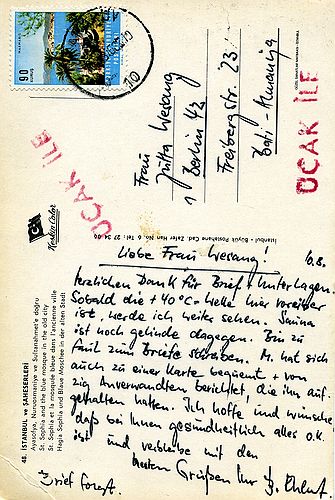 48. İSTANBUL ve ŞAHESERLERİ
Ayasofya, Nuruosmaniye ve Sultanahmet'e doğru
St. Sophia and the blue mosque in the old city
St. Sophia et la mosquée bleue dans l'ancienne ville
Hagia Sophia und Blaue Moschee in der alten Stadt
Keskin Color
İstanbul - Büyük Postahane Cad. Zafer Han No. 6 Tel: 27 34 00
90
UÇAK İLE
UÇAK İLE
Frau
Jutta Wesang
1 Berlin 42
Freibergstr. 23
Batı-Almanija
10.8.
Liebe Frau Wesang!
Herzlichen Dank für Brief + Unterlagen.
Sobald die +40°C-Welle hier vorüber
ist, werde ich weiter sehen. Sauna
ist noch gelinde dagegen. Bin zu
faul zum Briefe schreiben. M. hat sich
auch zu einer Karte bequemt + von
zig Anverwandten berichtet, die ihn auf-
gehalten hatten. Ich hoffe und wünsche,
daß bei Ihnen gesundheitlich alles o.k.
ist und verbleibe mit den
besten Grüßen Ihr
Brief folgt.